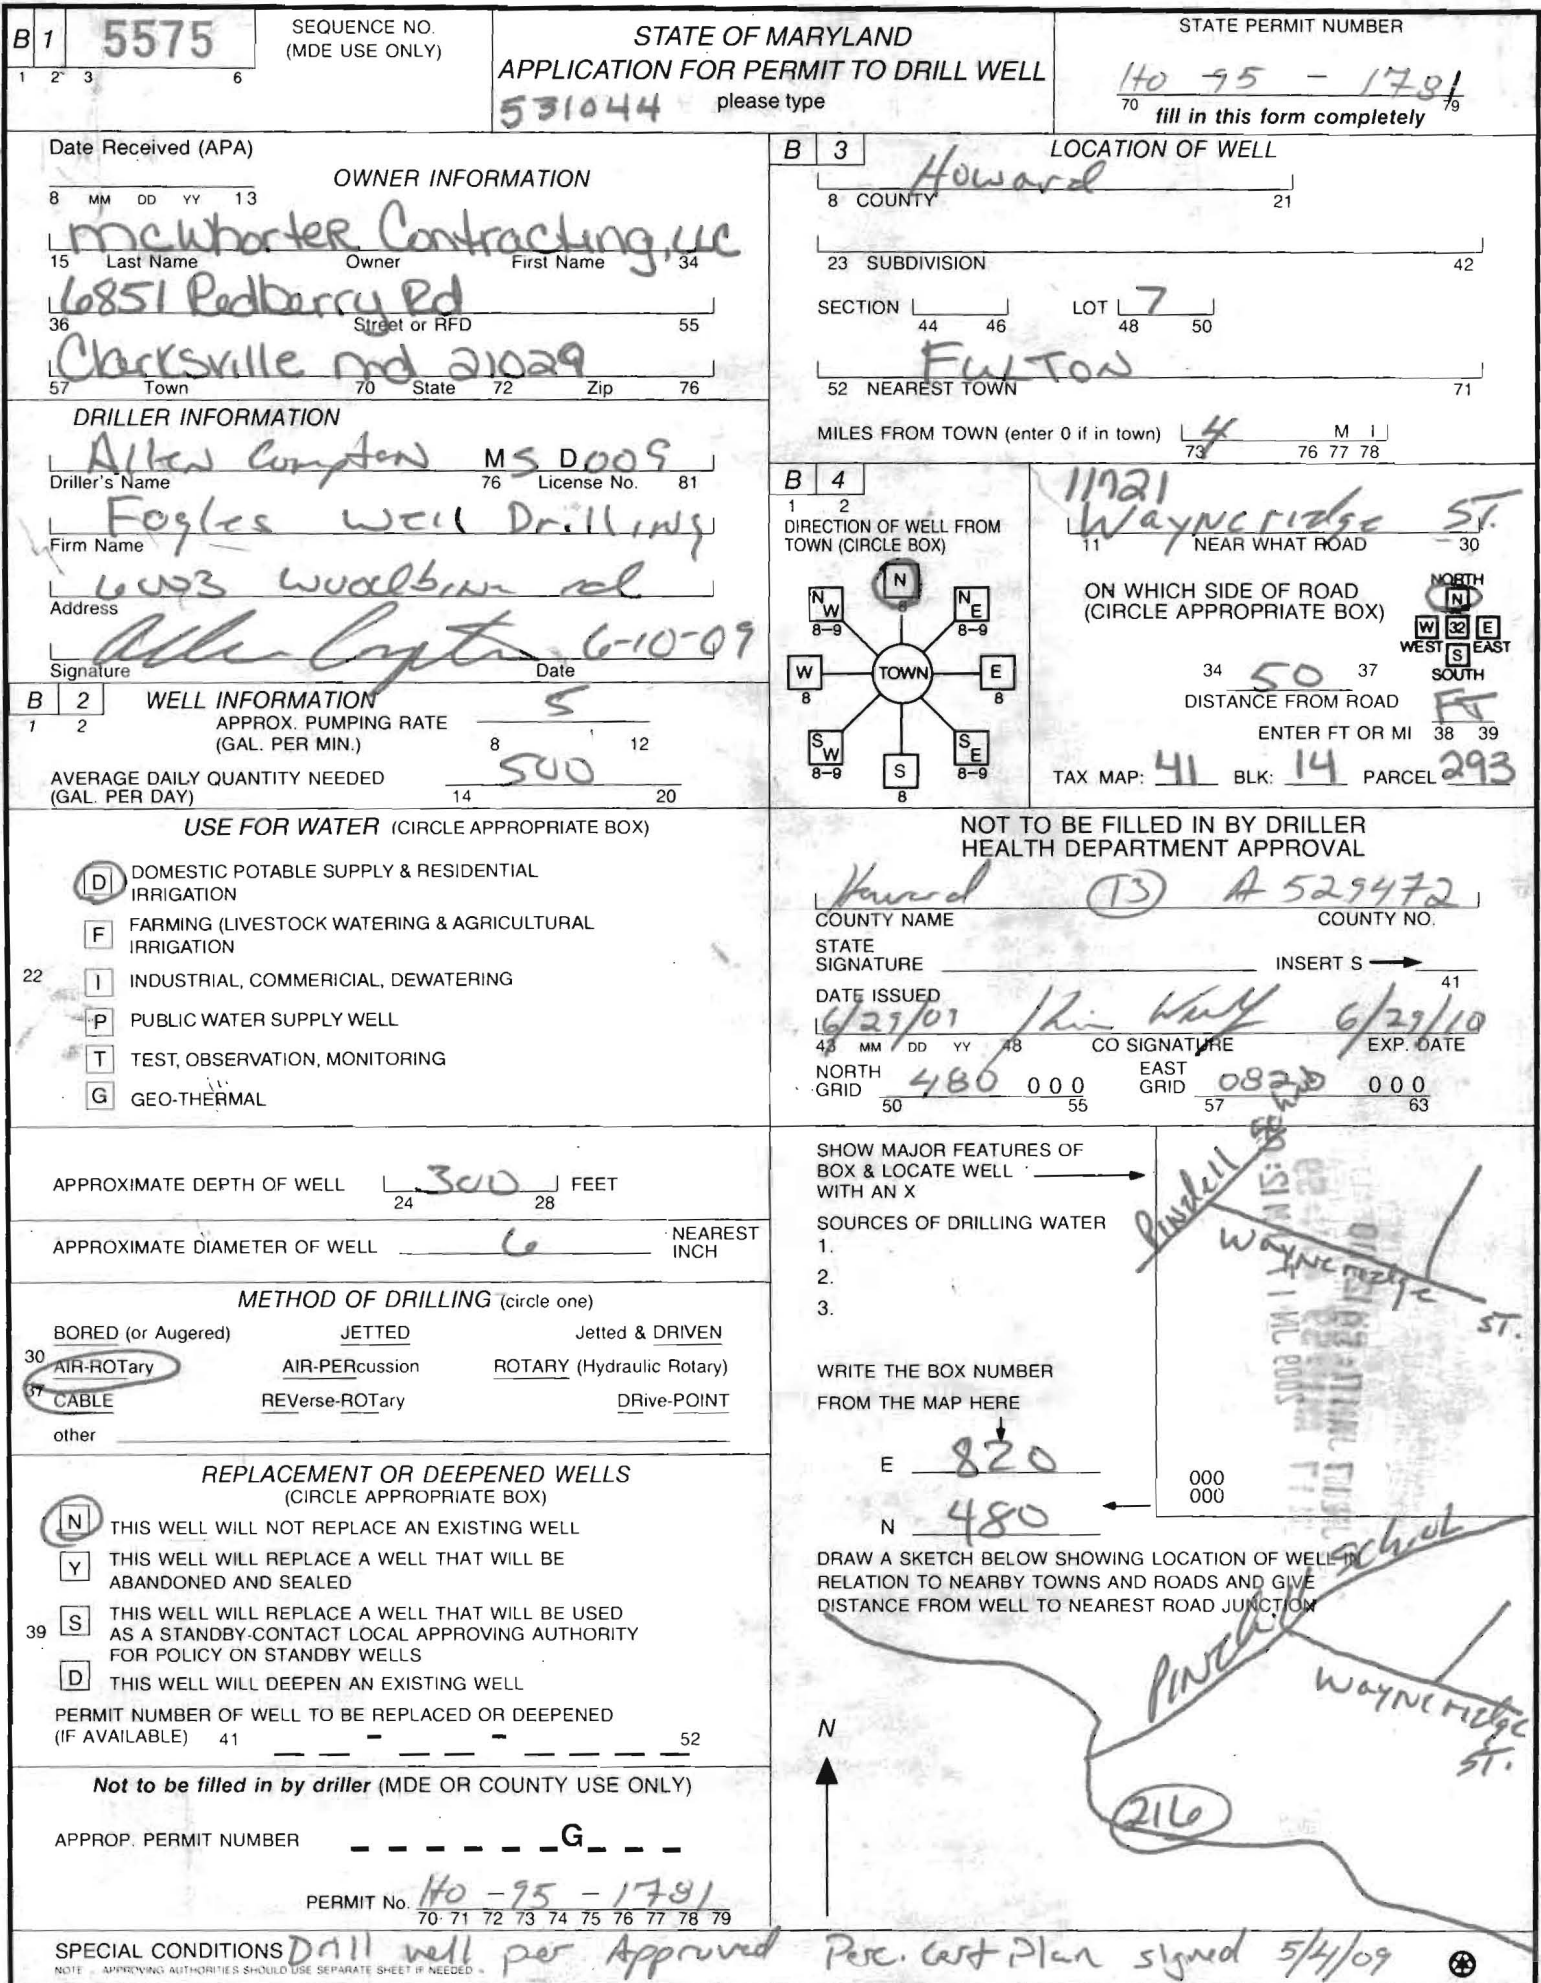 B 1 5575 SEQUENCE NO. (MDE USE ONLY)
1 2 3 6
STATE OF MARYLAND
APPLICATION FOR PERMIT TO DRILL WELL
531044 please type
STATE PERMIT NUMBER
HO - 95 - 1781
70 79
fill in this form completely
Date Received (APA)
8 MM DD YY 13
OWNER INFORMATION
McWhorter Contracting, LLC
15 Last Name Owner First Name 34
6851 Redberry Rd
36 Street or RFD 55
Clarksville md 21029
57 Town 70 State 72 Zip 76
DRILLER INFORMATION
Allen Compton MS D009
Driller's Name 76 License No. 81
Fogles Well Drilling
Firm Name
Woodbine rd
Address
Allen Compton 6-10-09
Signature Date
B 2 WELL INFORMATION
1 2
APPROX. PUMPING RATE (GAL. PER MIN.) 5
8 12
AVERAGE DAILY QUANTITY NEEDED (GAL. PER DAY) 500
14 20
USE FOR WATER (CIRCLE APPROPRIATE BOX)
D DOMESTIC POTABLE SUPPLY & RESIDENTIAL
IRRIGATION
F FARMING (LIVESTOCK WATERING & AGRICULTURAL
IRRIGATION
22 I INDUSTRIAL, COMMERICIAL, DEWATERING
P PUBLIC WATER SUPPLY WELL
T TEST, OBSERVATION, MONITORING
G GEO-THERMAL
APPROXIMATE DEPTH OF WELL 300 FEET
24 28
APPROXIMATE DIAMETER OF WELL 6 NEAREST INCH
METHOD OF DRILLING (circle one)
BORED (or Augered) JETTED Jetted & DRIVEN
30 AIR-ROTary AIR-PERcussion ROTARY (Hydraulic Rotary)
37 CABLE REVerse-ROTary DRive-POINT
other
REPLACEMENT OR DEEPENED WELLS
(CIRCLE APPROPRIATE BOX)
N THIS WELL WILL NOT REPLACE AN EXISTING WELL
Y THIS WELL WILL REPLACE A WELL THAT WILL BE
ABANDONED AND SEALED
39 S THIS WELL WILL REPLACE A WELL THAT WILL BE USED
AS A STANDBY-CONTACT LOCAL APPROVING AUTHORITY
FOR POLICY ON STANDBY WELLS
D THIS WELL WILL DEEPEN AN EXISTING WELL
PERMIT NUMBER OF WELL TO BE REPLACED OR DEEPENED
(IF AVAILABLE) 41 - - 52
Not to be filled in by driller (MDE OR COUNTY USE ONLY)
APPROP. PERMIT NUMBER G
PERMIT No. HO - 95 - 1781
70 71 72 73 74 75 76 77 78 79
B 3 LOCATION OF WELL
Howard
8 COUNTY 21
23 SUBDIVISION 42
SECTION LOT 7
44 46 48 50
FULTON
52 NEAREST TOWN 71
MILES FROM TOWN (enter 0 if in town) 4 M I
73 76 77 78
B 4
1 2
DIRECTION OF WELL FROM
TOWN (CIRCLE BOX)
N
8
NW NE
8-9 8-9
W TOWN E
8 8
SW SE
8-9 S 8-9
8
11721
Wayneridge ST.
11 NEAR WHAT ROAD 30
ON WHICH SIDE OF ROAD
(CIRCLE APPROPRIATE BOX)
NORTH
N
W 32 E
WEST S EAST
SOUTH
34 50 37
DISTANCE FROM ROAD
ENTER FT OR MI FT
38 39
TAX MAP: 41 BLK: 14 PARCEL 293
NOT TO BE FILLED IN BY DRILLER
HEALTH DEPARTMENT APPROVAL
Howard 13 A 529472
COUNTY NAME COUNTY NO.
STATE
SIGNATURE INSERT S
41
DATE ISSUED
6/29/09 6/29/10
43 MM DD YY 48 CO SIGNATURE EXP. DATE
NORTH GRID 480 000 EAST GRID 0820 000
50 55 57 63
SHOW MAJOR FEATURES OF
BOX & LOCATE WELL
WITH AN X
SOURCES OF DRILLING WATER
1.
2.
3.
Pindell
Wayneridge
ST.
WRITE THE BOX NUMBER
FROM THE MAP HERE
E 820
N 480
000
000
DRAW A SKETCH BELOW SHOWING LOCATION OF WELL IN
RELATION TO NEARBY TOWNS AND ROADS AND GIVE
DISTANCE FROM WELL TO NEAREST ROAD JUNCTION
Pindell School
Wayneridge
ST.
N
216
SPECIAL CONDITIONS Drill well per Approved Perc. Cert Plan signed 5/4/09
NOTE - APPROVING AUTHORITIES SHOULD USE SEPARATE SHEET IF NEEDED -